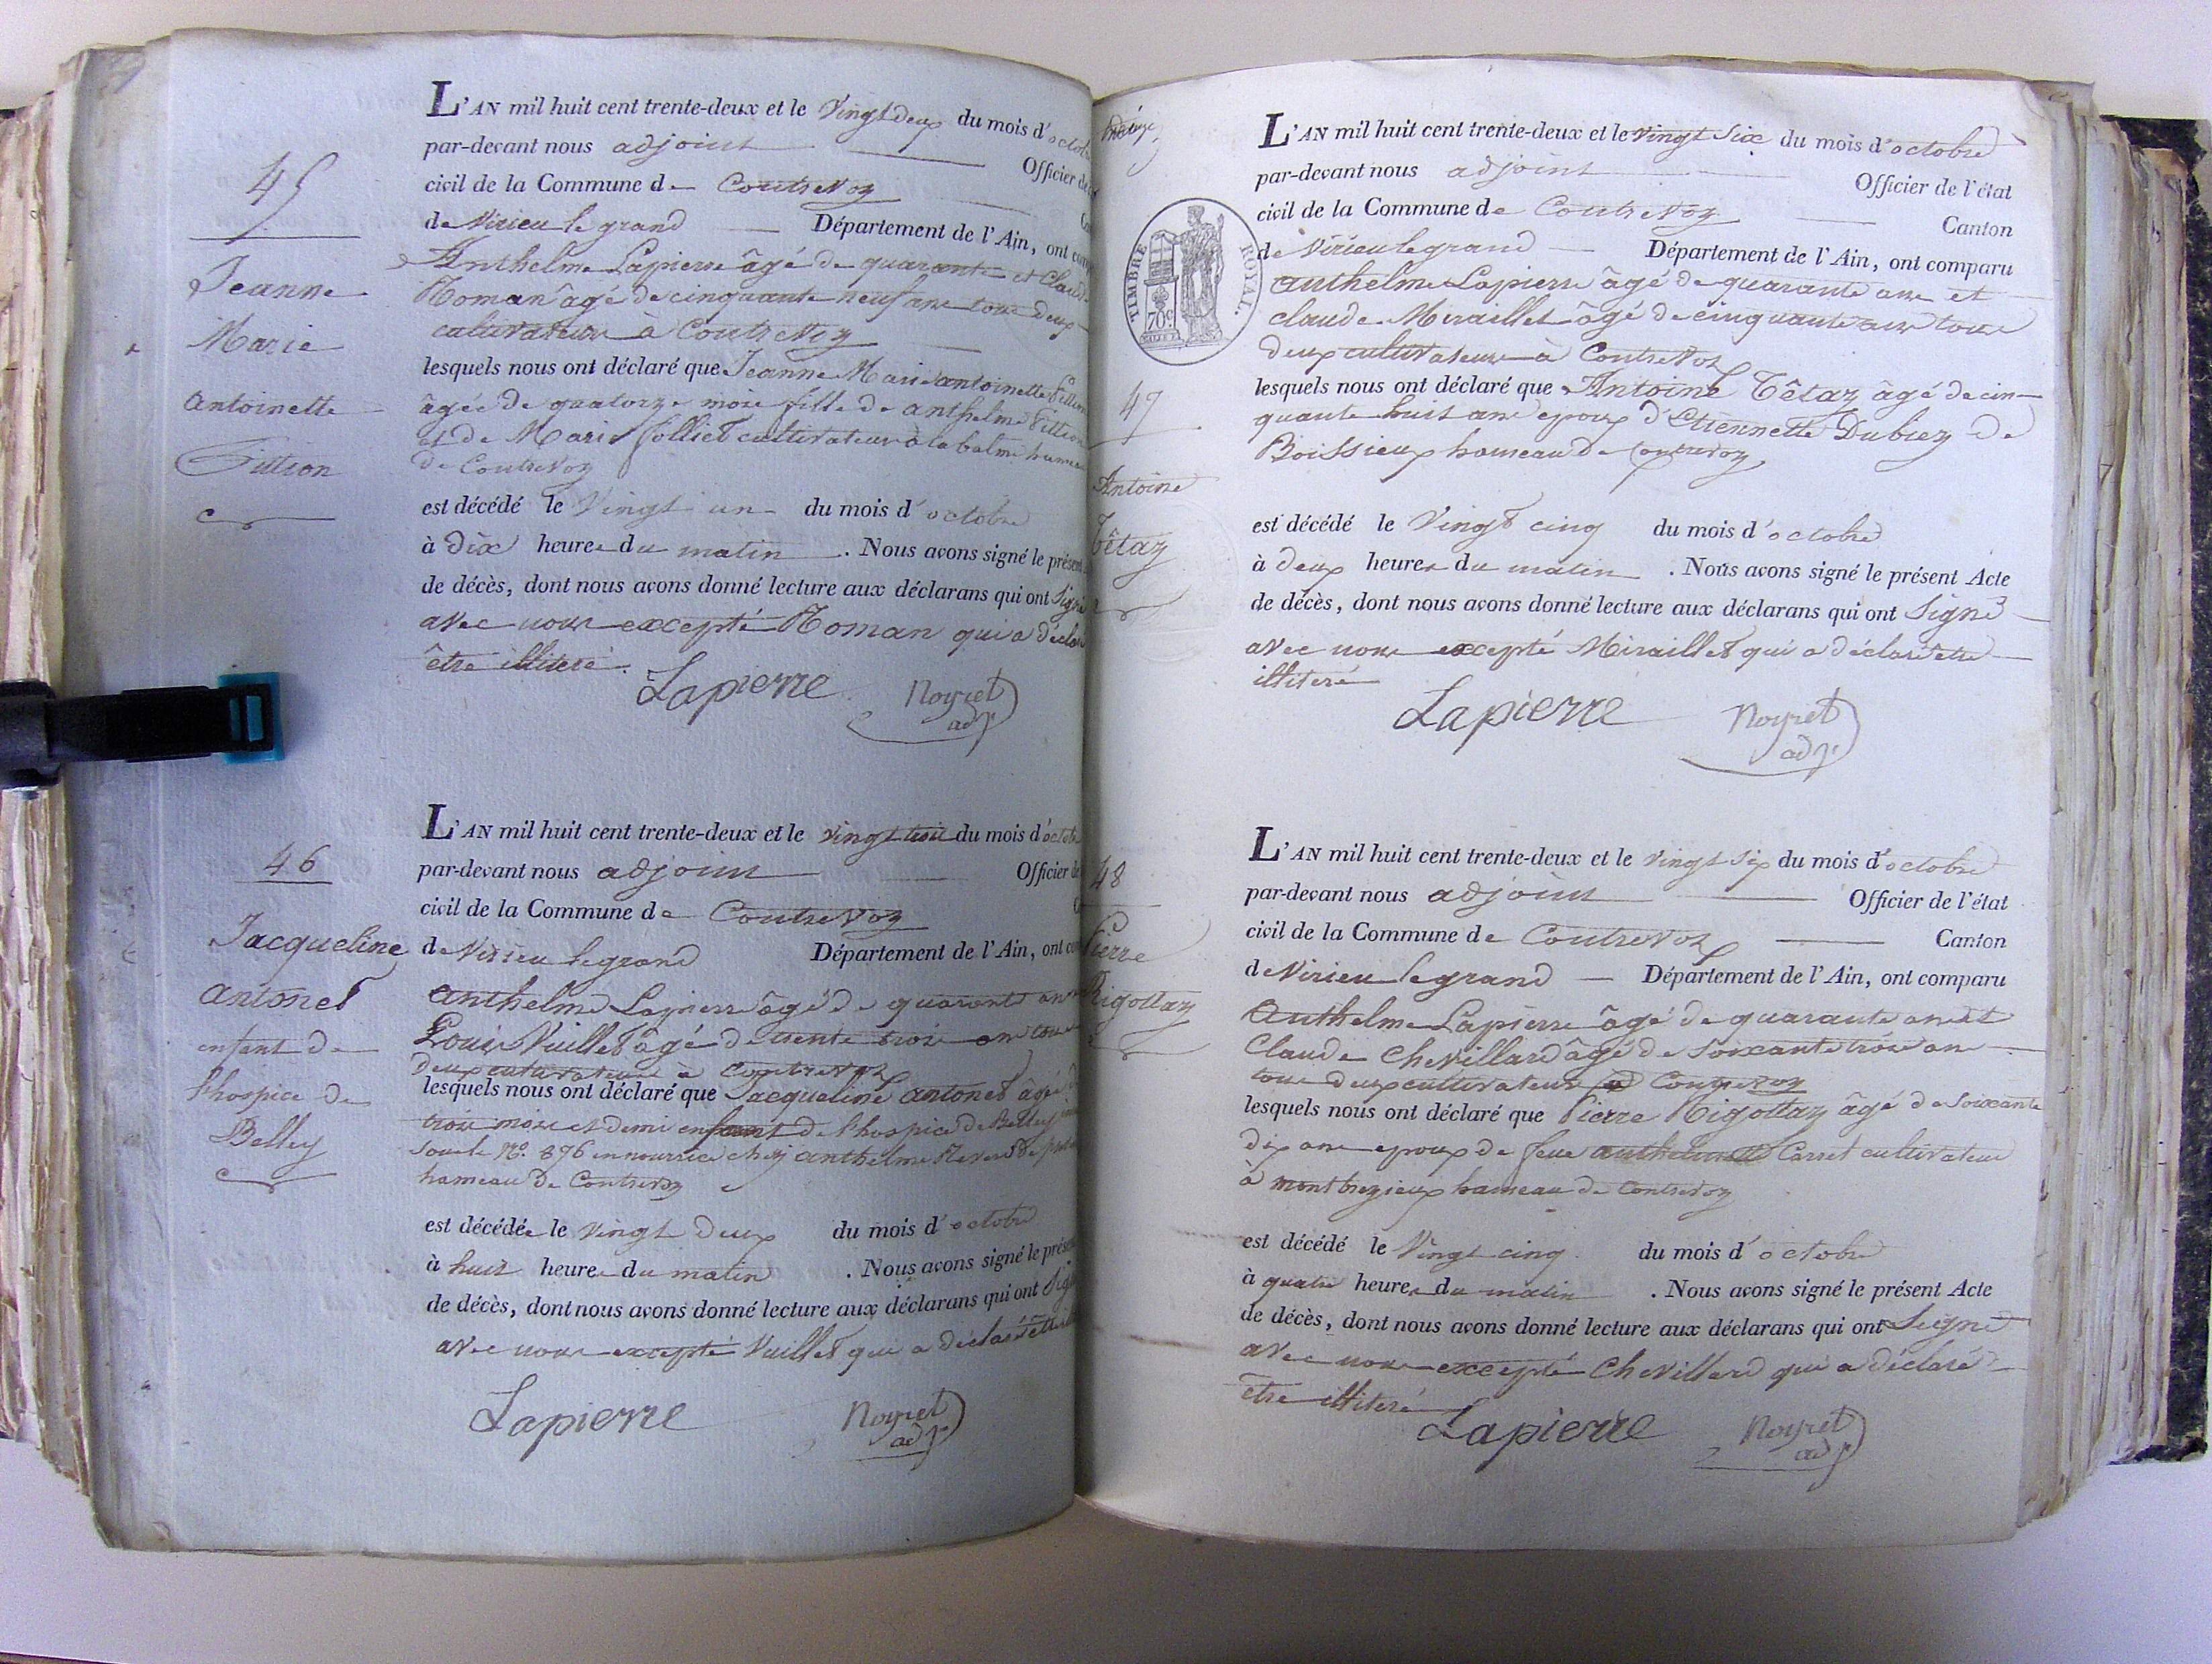 45
Jeanne
Marie
antoinette
Fittion
L'AN mil huit cent trente-deux et le Vingt deux du mois d'octob
par-devant nous adjoint Officier de
civil de la Commune de Contrevoz
de Virieu le grand Département de l'Ain, ont com
Anthelme Lapierre âgé de quarante et Claude
Roman âgé de cinquante neuf ans tous deux
cultivateurs à Contrevoz
lesquels nous ont déclaré que Jeanne Marie antoinette Fittion
âgée de quatorze mois fille de anthelme Fittion
et de Marie Jolliet cultivateur à la balme hameau
de Contrevoz
est décédé le Vingt un du mois d'octobre
à dix heures du matin. Nous avons signé le présent
de décès, dont nous avons donné lecture aux déclarans qui ont Signé
avec nous excepté Roman qui a déclaré
être illiteré.
Lapierre Noyret
adjt
46
Jacqueline
antonet
enfant de
l'hospice de
Belley
L'AN mil huit cent trente-deux et le vingt trois du mois d'octob
par-devant nous adjoint Officier de
civil de la Commune de Contrevoz
de Virieu le grand Département de l'Ain, ont com
anthelme Lapierre âgé de quarante ans
Louis Vuillet âgé de trente trois ans tous
deux cultivateurs à Contrevoz
lesquels nous ont déclaré que Jacqueline antonet âgée
trois mois et demi enfant de l'hospice de Belley
sous le No. 876 en nourrice chez anthelme
hameau de Contrevoz
est décédée le Vingt deux du mois d'octobre
à huit heures du matin. Nous avons signé le prése
de décès, dont nous avons donné lecture aux déclarans qui ont Sig
avec nous excepté Vuillet qui a déclaré être
Lapierre Noyret
adjt
TIMBRE ROYAL.
70c
47
Antoine
Têtaz
L'AN mil huit cent trente-deux et le Vingt Six du mois d'octobre
par-devant nous adjoint Officier de l'état
civil de la Commune de Contrevoz Canton
de Virieu le grand Département de l'Ain, ont comparu
anthelme Lapierre âgé de quarante ans et
claude Miraillet âgé de cinquante ans tous
deux cultivateurs à Contrevoz
lesquels nous ont déclaré que Antoine Têtaz âgé de cin-
quante huit ans epoux d'Etiennette Dubrez de
Boissieux hameau de Contrevoz
est décédé le Vingt cinq du mois d'octobre
à deux heures du matin. Nous avons signé le présent Acte
de décès, dont nous avons donné lecture aux déclarans qui ont Signé
avec nous excepté Miraillet qui a déclaré être
illiteré
Lapierre Noyret
adjt
48
Pierre
Rigottaz
L'AN mil huit cent trente-deux et le vingt Six du mois d'octobre
par-devant nous adjoint Officier de l'état
civil de la Commune de Contrevoz Canton
de Virieu le grand Département de l'Ain, ont comparu
Anthelme Lapierre âgé de quarante ans et
Claude Chevillard âgé de Soixante trois ans
tous deux cultivateurs à Contrevoz
lesquels nous ont déclaré que Pierre Rigottaz âgé de Soixante
dix ans epoux de feue anthelmette Carrel cultivateur
à montbrezieux hameau de Contrevoz
est décédé le Vingt cinq du mois d'octobre
à quatre heures du matin. Nous avons signé le présent Acte
de décès, dont nous avons donné lecture aux déclarans qui ont Signé
avec nous excepté Chevillard qui a déclaré
être illiteré
Lapierre Noyret
adjt